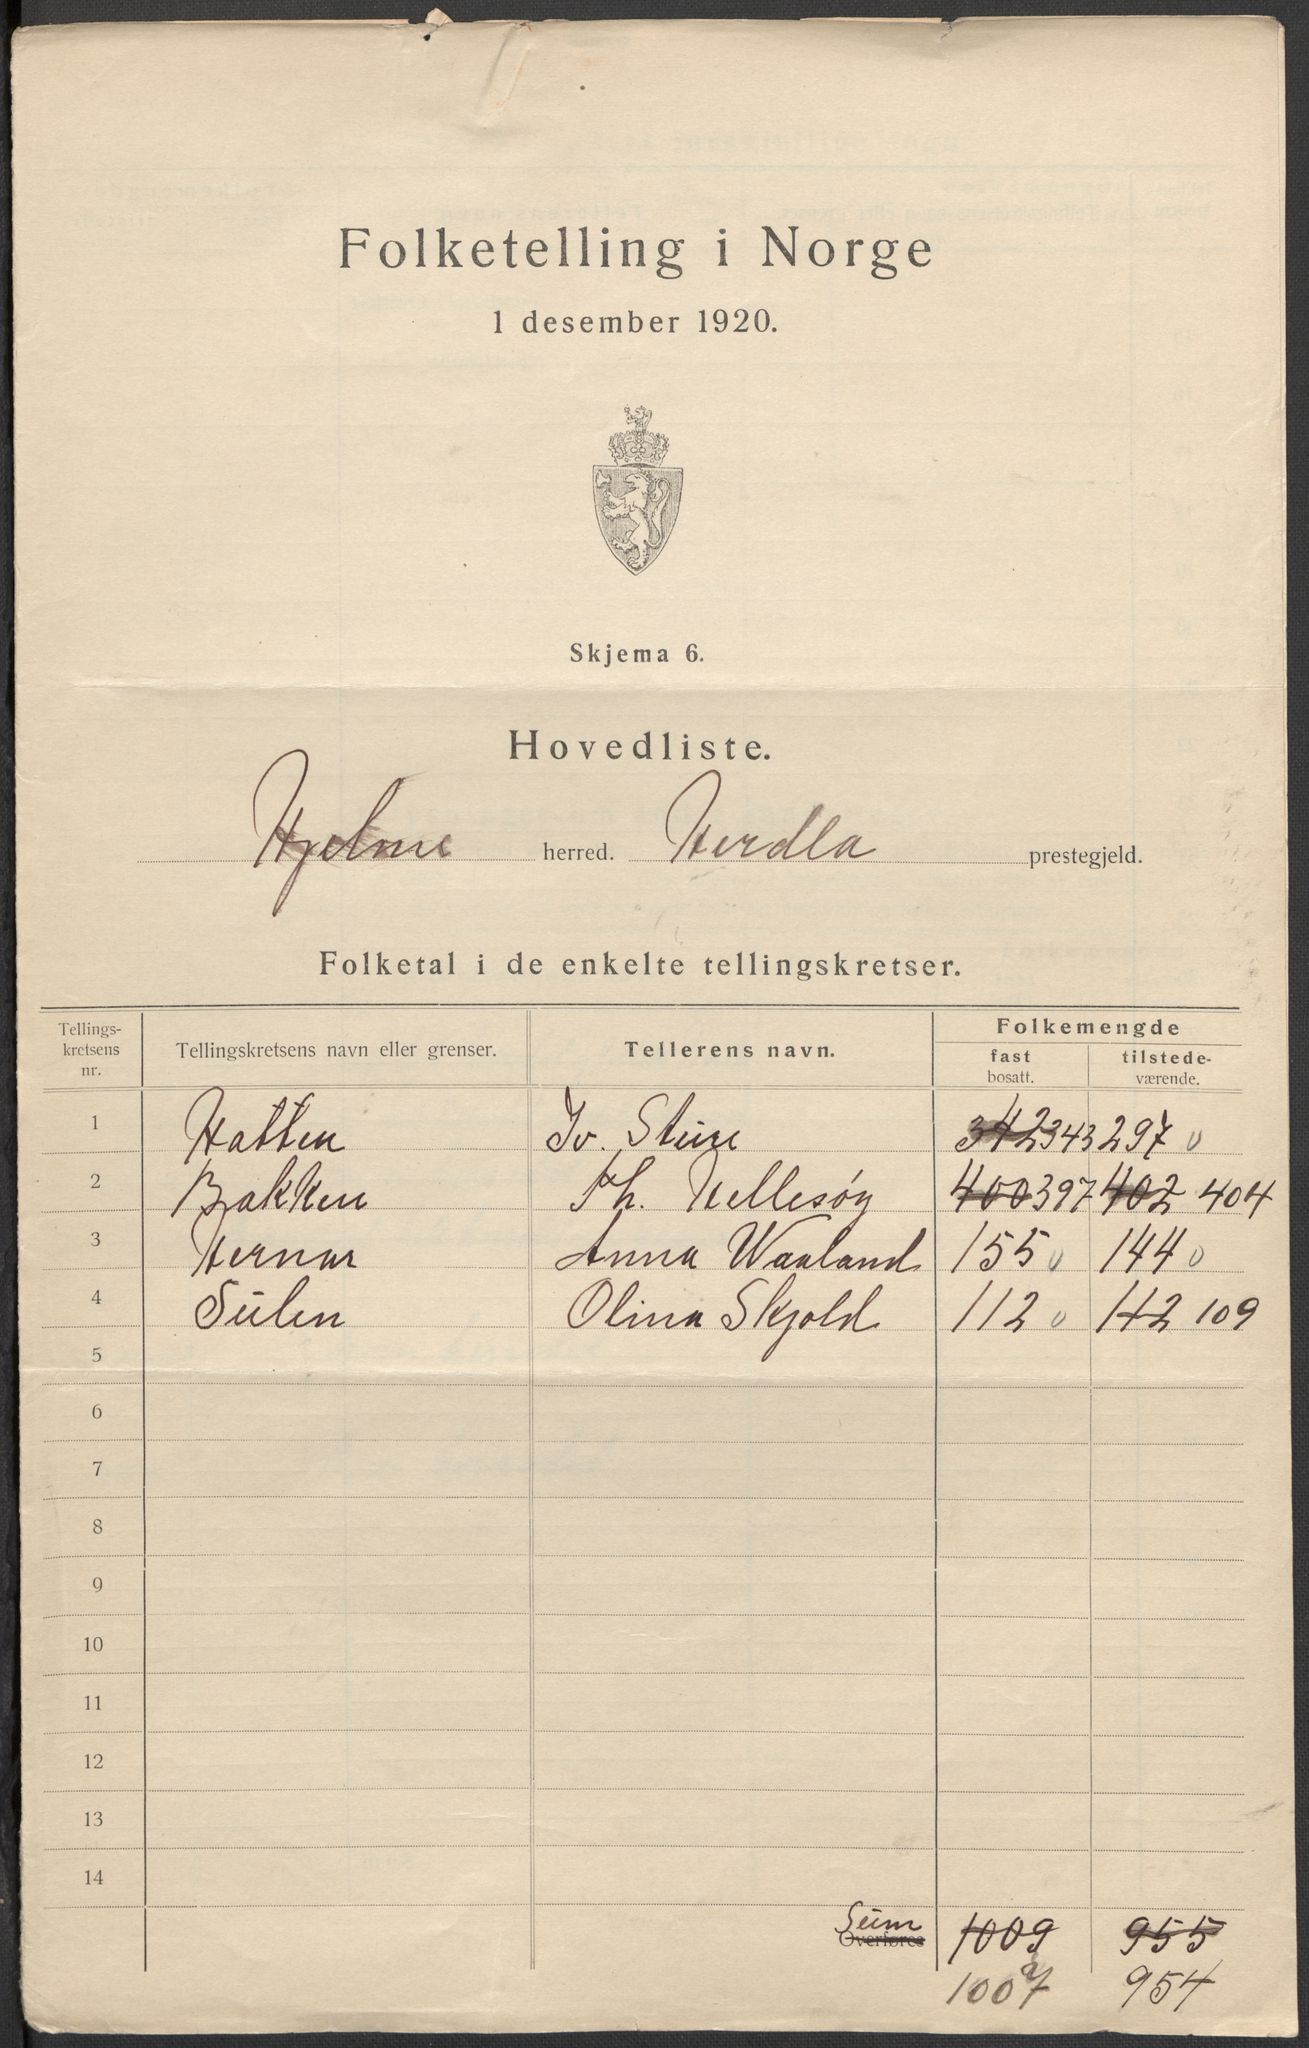 Folketelling i Norge
1 desember 1920.
Skjema 6.
Hovedliste.
Hjelme herred. Herdla prestegjeld.
Folketal i de enkelte tellingskretser.
Tellings-kretsens nr. Tellingskretsens navn eller grenser. Tellerens navn. Folkemengde
fast bosatt. tilstede-værende.
1 Hatten Iv. Steire 342 343 297 0
2 Bakken Th. Hellesøy 400 397 402 404
3 Hernar Anna Waaland 155 0 144 0
4 Sulen Olina Skjold 112 0 112 109
5
6
7
8
9
10
11
12
13
14
Sum Overføres 1009 955
1007 954